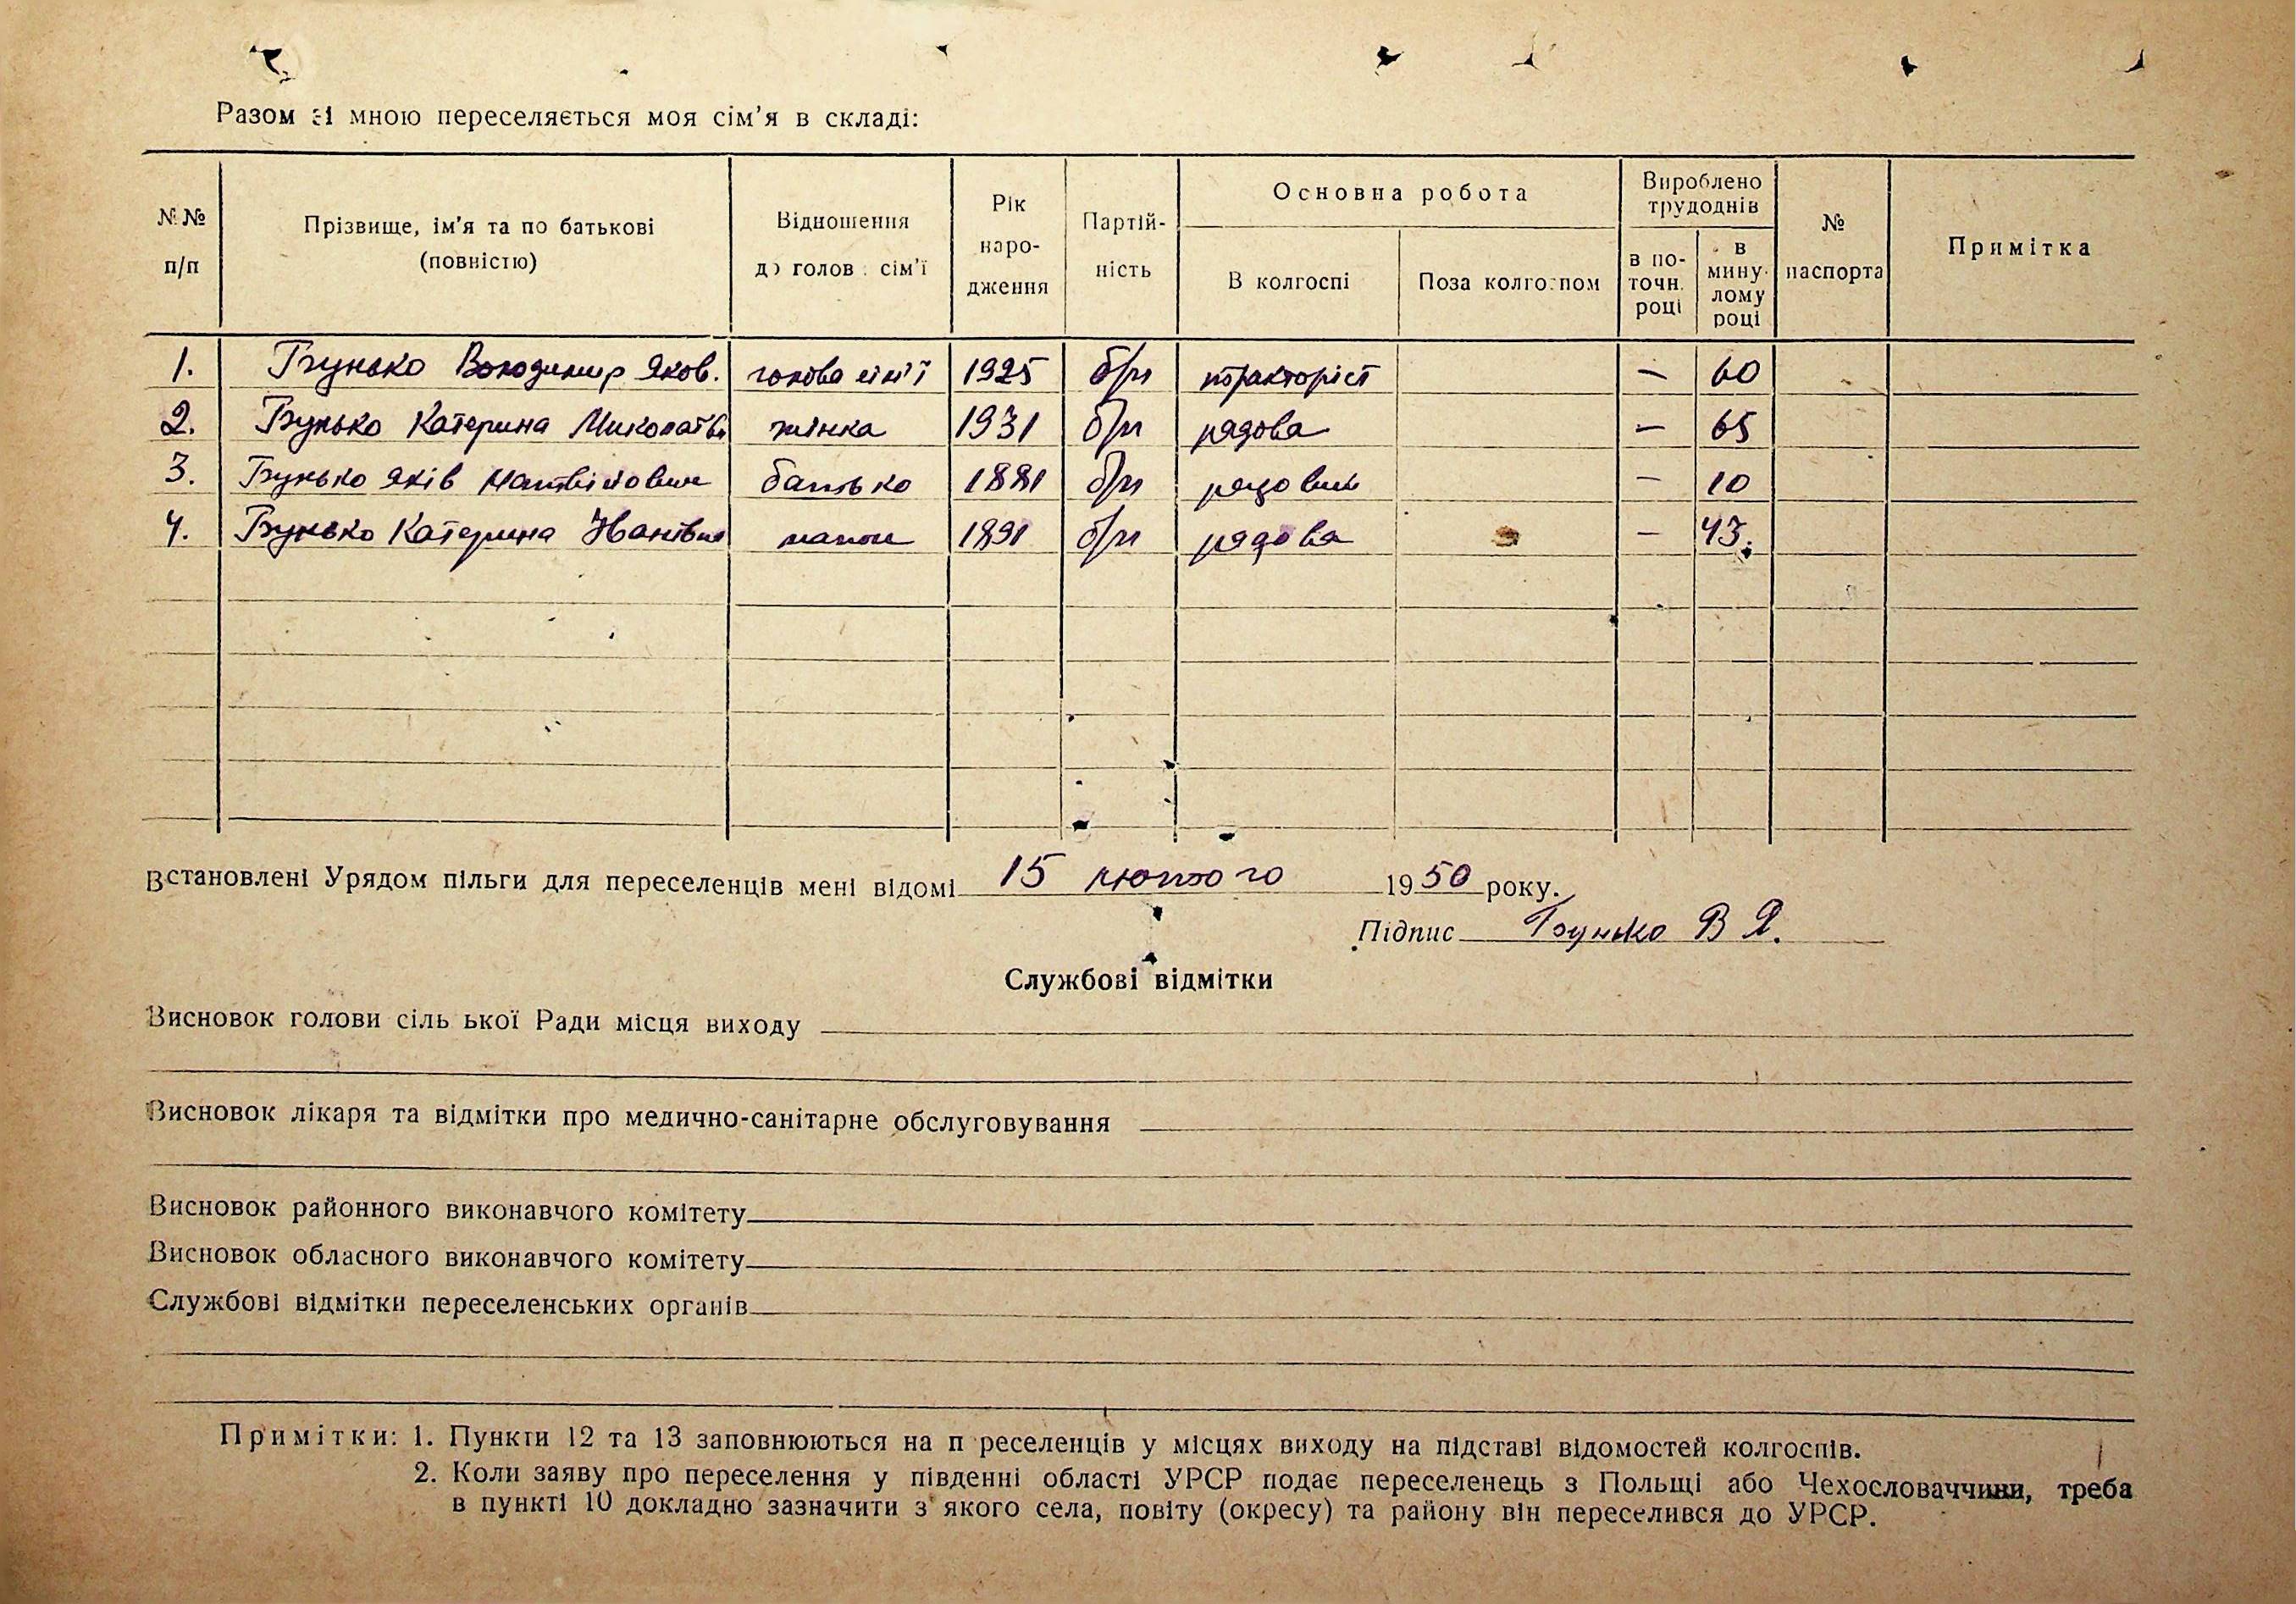 Разом зі мною переселяється моя сім'я в складі:
№№ п/п
Прізвище, ім'я та по батькові (повністю)
Відношення до голов. сім'ї
Рік народження
Партійність
Основна робота
В колгоспі
Поза колгоспом
Вироблено трудоднів
в поточн. році
в минулому році
№ паспорта
Примітка
1. Бунько Володимир Яков. голова сім'ї 1925 б/п тракторіст — 60
2. Бунько Катерина Миколаївн жінка 1931 б/п рядова — 65
3. Бунько Яків Матвійович батько 1881 б/п рядовий — 10
4. Бунько Катерина Іванівна мати 1891 б/п рядова — 43.
Встановлені Урядом пільги для переселенців мені відомі 15 лютого 1950 року.
Підпис Бунько В Я.
Службові відмітки
Висновок голови сіль ької Ради місця виходу
Висновок лікаря та відмітки про медично-санітарне обслуговування
Висновок районного виконавчого комітету
Висновок обласного виконавчого комітету
Службові відмітки переселенських органів
Примітки: 1. Пункти 12 та 13 заповнюються на п реселенців у місцях виходу на підставі відомостей колгоспів.
2. Коли заяву про переселення у південні області УРСР подає переселенець з Польщі або Чехословаччини, треба
в пункті 10 докладно зазначити з якого села, повіту (окресу) та району він переселився до УРСР.